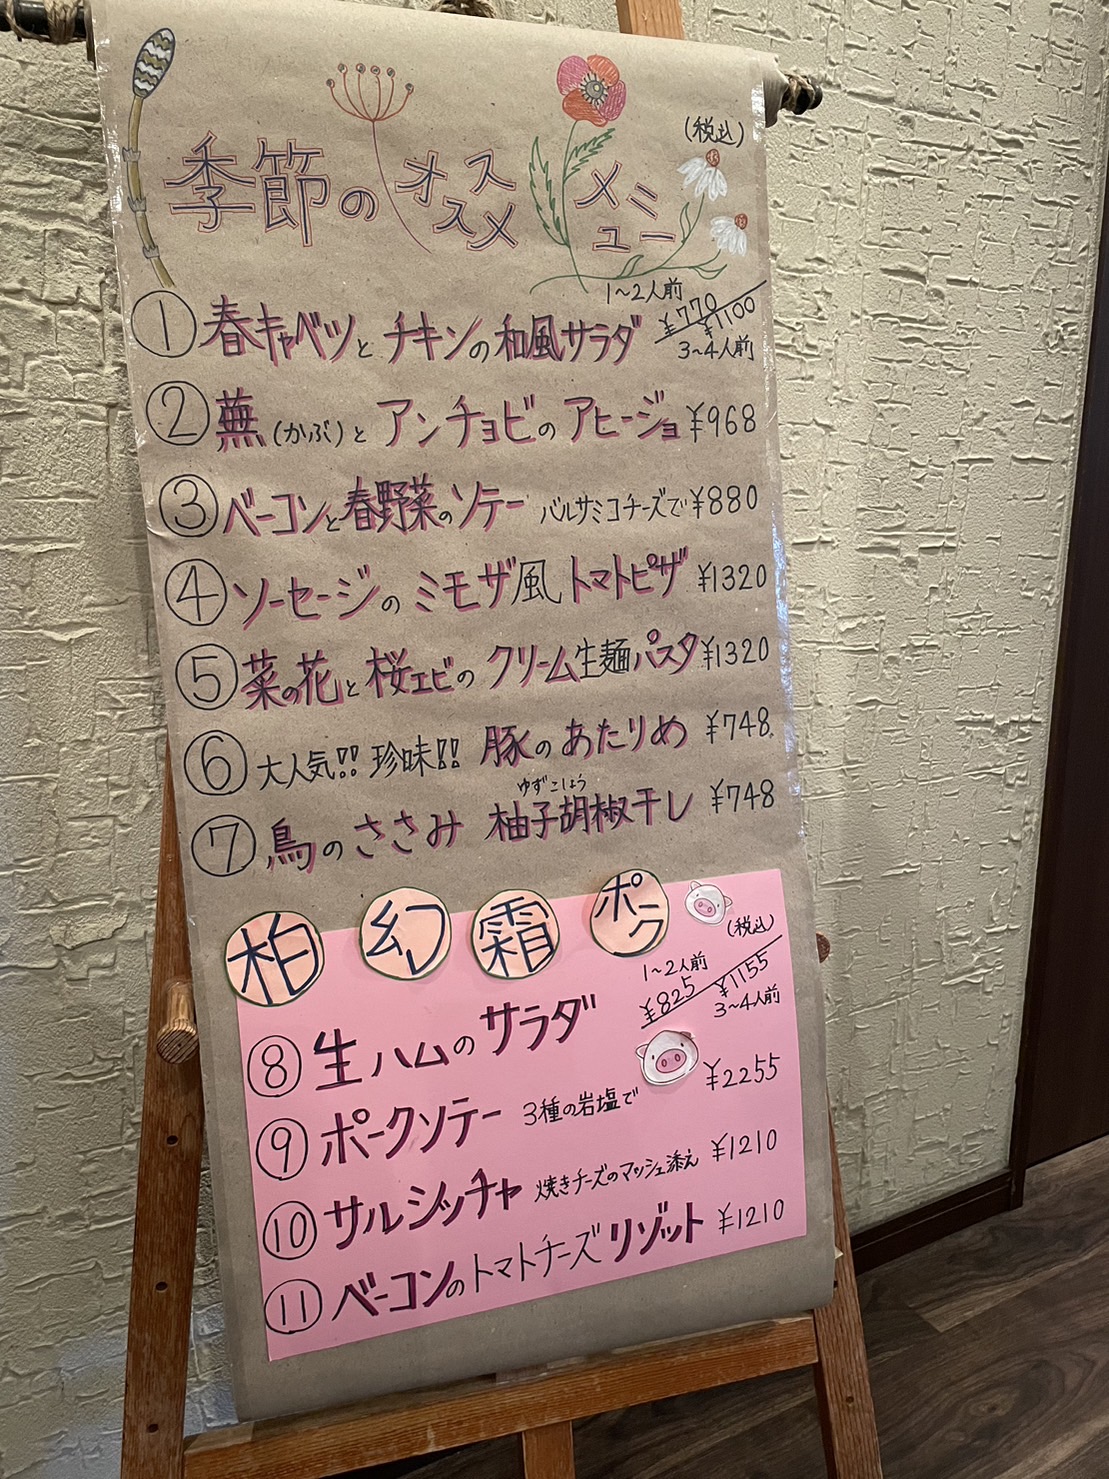 季節のオススメメニュー
(税込)
① 春キャベツとチキンの和風サラダ 1〜2人前 ¥770 ¥1100 3〜4人前
② 蕪(かぶ)とアンチョビのアヒージョ ¥968
③ ベーコンと春野菜のソテー バルサミコチーズで ¥880
④ ソーセージのミモザ風トマトピザ ¥1320
⑤ 菜の花と桜エビのクリーム生麺パスタ ¥1320
⑥ 大人気!! 珍味!! 豚のあたりめ ¥748
ゆずこしょう
⑦ 鳥のささみ 柚子胡椒干し ¥748
柏幻霜ポーク
(税込)
⑧ 生ハムのサラダ 1〜2人前 ¥825 ¥1155 3〜4人前
⑨ ポークソテー 3種の岩塩で ¥2255
⑩ サルシッチャ 焼きチーズのマッシュ添え ¥1210
⑪ ベーコンのトマトチーズリゾット ¥1210